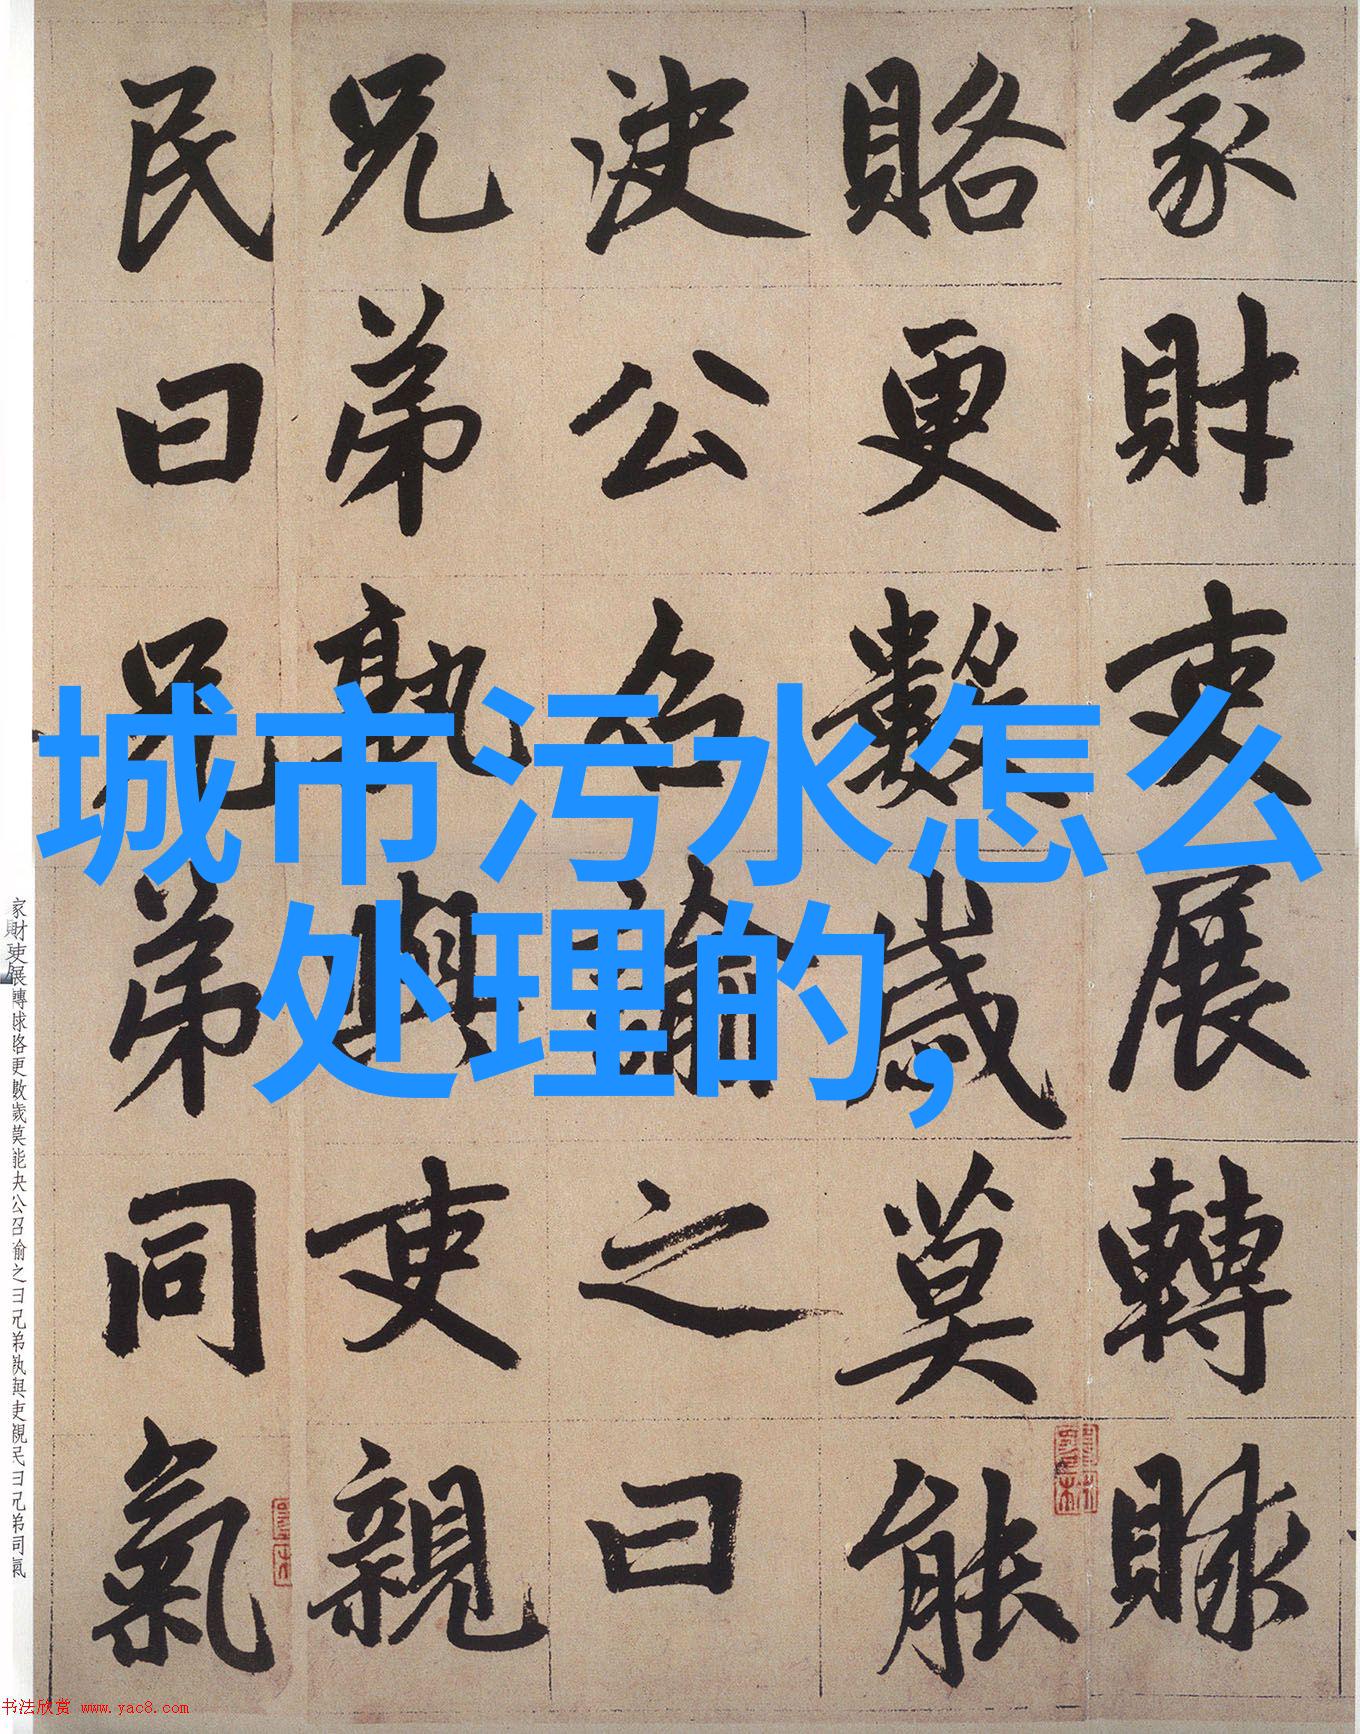 家財吏展轉賕
賂更數歲莫能
决公召諭之曰
兄弟孰與吏親
民曰兄弟同氣
城市污水怎么
处理的,
家財吏展轉賕賂更數歲莫能决公召諭之曰兄弟孰與吏親民曰兄弟同氣
书法欣赏 www.yac8.com